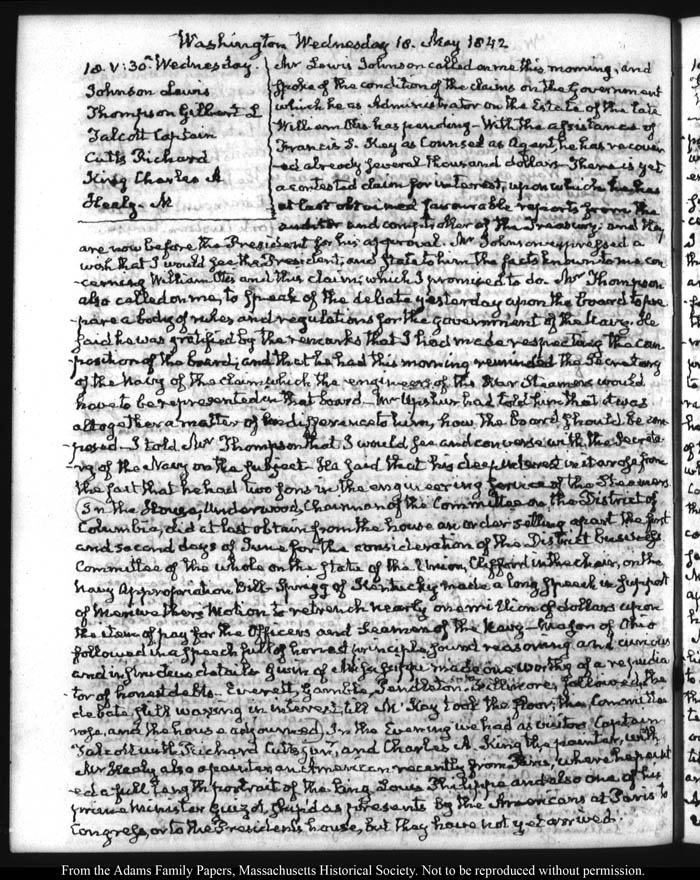 Washington Wednesday 18. May 1842
18. V: 30. Wednesday.
Johnson Lewis
Thompson Gilbert L
Talcott Captain
Cutts Richard
King Charles A
Healy. M
Mr Lewis Johnson called on me this morning, and
spoke of the condition of the claims on the Government
which he as Administrator on the Estate of the late
William Otis has pending. With the assistance of
Francis S. Key as Counsel as Agent, he has recover
ed already several thousand dollars. There is yet
a contested claim for interest, upon which he has
at last obtained favourable reports from the
auditor and comptroller of the Treasury; and they
are now before the President for his approval. Mr Johnson expressed a
wish that I would see the President, and state to him the facts known to me con
cerning William Otis and this claim; which I promised to do. Mr Thompson
also called on me, to speak of the debate yesterday upon the board to pre
pare a body of rules and regulations for the government of the Navy. He
said he was gratified by the remarks that I had made respecting the com
position of the board; and that he had this morning reminded the Secretary
of the Navy of the claim which the engineers of the War Steamers would
have to be represented in that board. Mr Upshur had told him that it was
altogether a matter of indifference to him, how the board should be com
posed. I told Mr Thompson that I would see and converse with the Secreta
ry of the Navy on the subject. He said that his deep interest in it arose from
the fact that he had two sons in the engineering service of the Steamers
In the House, Underwood, Chairman of the Committee on the District of
Columbia, did at last obtain from the house an order setting apart the first
and second days of June for the consideration of the District business
Committee of the whole on the state of the Union, Clifford in the chair, on the
Navy Appropriation Bill. Sprigg of Kentucky made a long speech in support
of Meriwether's Motion to retrench nearly one million of dollars upon
the item of pay for the Officers and Seamen of the Navy. Mason of Ohio
followed in a speech full of honest principle, sound reasoning and curious
and details. Gwin of Mississippi made one worthy of a repudia
tor of honest debts. Everett, Gamble, Pendleton, Fillmore, followed, the
debate still waxing in interest, till Mc Kay took the floor, the Committee
rose, and the house adjourned. In the Evening we had as visitors Captain
Talcott with Richard Cutts junr, and Charles A. King the painter, with
Mr Healy also a painter, an American recently from Paris, where he paint
ed a full length portrait of the King, Louis Philippe and also one of his
prime Minister Guizot, as presents by the Americans at Paris to
Congress, or to the President's house, but they have not yet arrived.
From the Adams Family Papers, Massachusetts Historical Society. Not to be reproduced without permission.